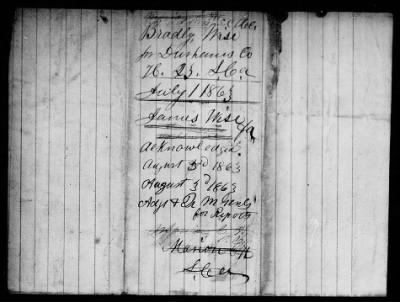 Bradley Wise
for Dunhams Co
H. 23. S.C.a
July 1 1863
James Wise
Acknowledged.
August 3d 1863
August 3d 1863
Adjt &
for Report
Marion CH
S.C.